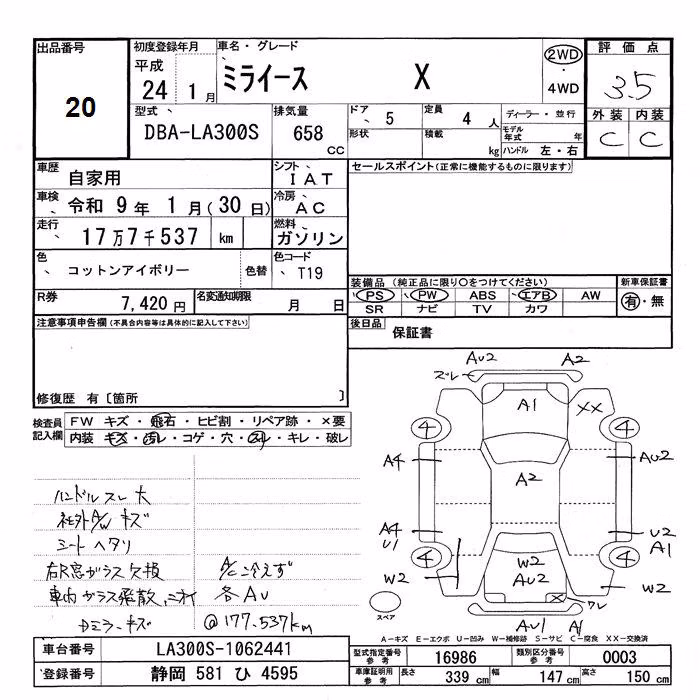 出品番号 20
初度登録年月 平成 24 1月
車名・グレード ミライース X
2WD ・ 4WD
評価点 3.5
型式 DBA-LA300S
排気量 658 CC
ドア 5
形状
定員 4 人
積載 kg
ディーラー・並行
モデル年式 年
ハンドル 左・右
外装 C
内装 C
車歴 自家用
シフト IAT
車検 令和 9年 1月(30日)
冷房 AC
走行 17万7千537 km
燃料 ガソリン
色 コットンアイボリー 色替
色コード T19
R券 7,420円
名変通知期限 月 日
セールスポイント(正常に機能するものに限ります)
装備品(純正品に限り○をつけてください)
PS PW ABS エアB AW
SR ナビ TV カワ
新車保証書 有・無
注意事項申告欄(不具合内容等は具体的に記入して下さい)
修復歴 有〔箇所 〕
後日品 保証書
検査員記入欄
FW キズ・飛石・ヒビ割・リペア跡・×要
内装 キズ・汚レ・コゲ・穴・スレ・キレ・破レ
ハンドルスレ大
社外A/Wキズ
シートヘタリ
右R窓ガラス欠損 A/C冷えず
車内ガラス飛散、ニオイ 各AU
Dミラーキズ @177.537km
AU2 A2
ズレ
A1 XX
4 4
A4 A2 AU2
A4 U2
U1 A1
4 4
W2 W2 AU2 W2
X ワレ
スペア
AU1 A1
A−キズ E−エクボ U−凹み W−補修跡 S−サビ C−腐食 XX−交換済
車台番号 LA300S-1062441
登録番号 静岡 581 ひ 4595
型式指定番号 参考 16986
類別区分番号 参考 0003
車庫証明用 参考 長さ 339 cm 幅 147 cm 高さ 150 cm